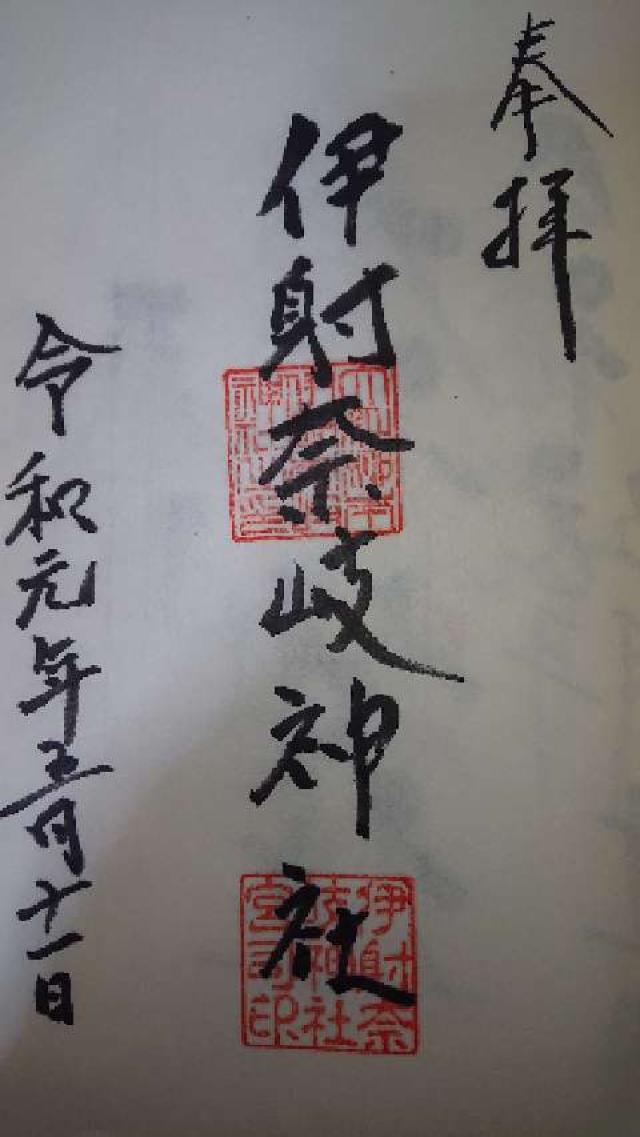 奉拝
伊射奈岐神社
伊射奈
岐神社
宮司印
令和元年五月十一日